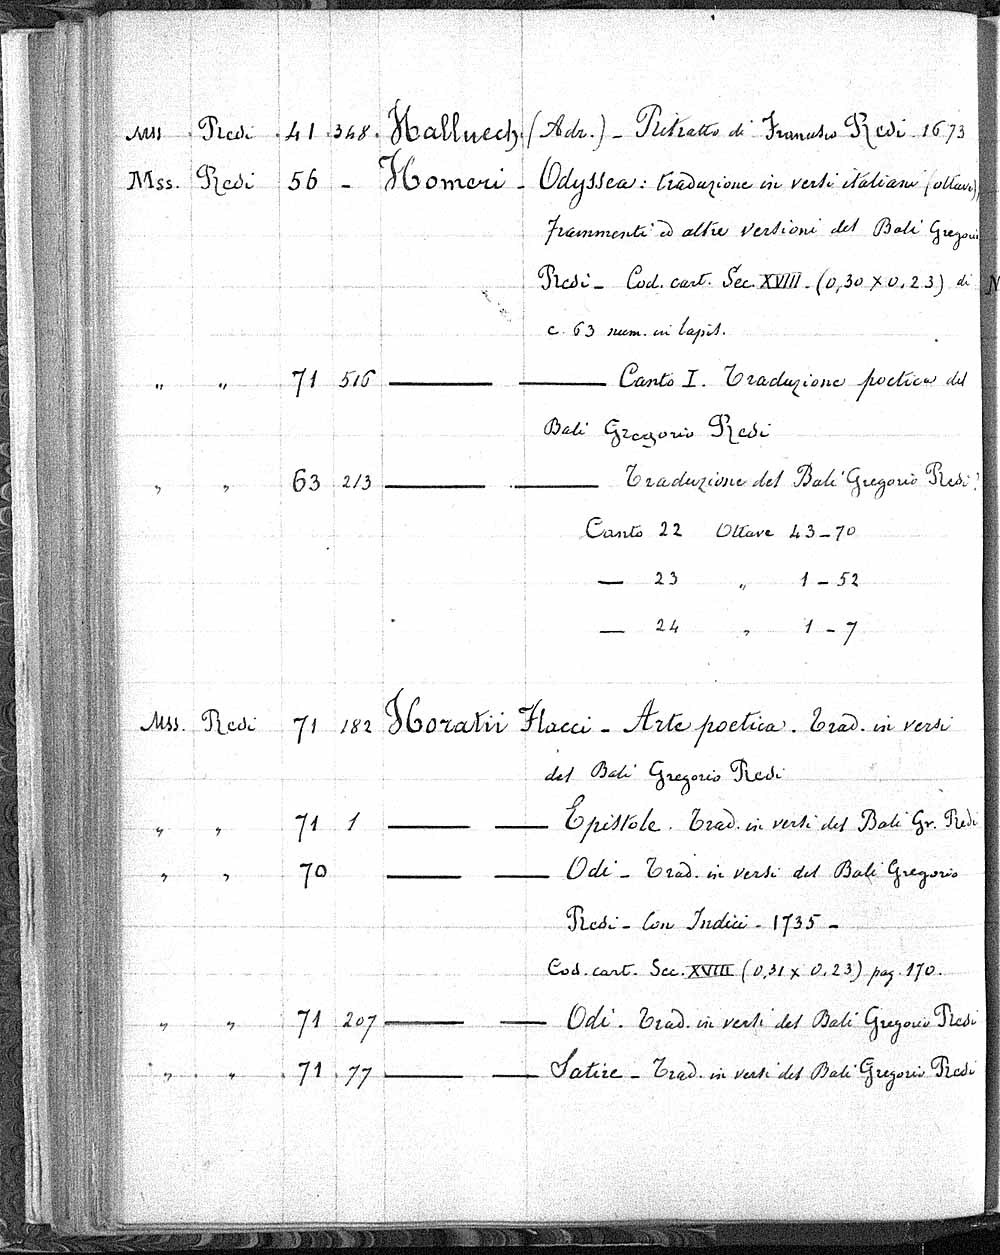 Mss Redi 41 348. Halluech (Adr.) - Ritratto di Francesco Redi 1673
Mss. Redi 56 - Homeri - Odyssea: traduzione in versi italiani (ottave)
frammenti ed altre versioni del Balì Gregorio
Redi - Cod. cart. Sec. XVIII - (0,30 x 0.23) di
c. 63 num. in lapis.
" " 71 516 — — Canto I. Traduzione poetica del
Balì Gregorio Redi
" " 63 213 — — Traduzione del Balì Gregorio Redi?
Canto 22 Ottave 43-70
— 23 " 1-52
— 24 " 1-7
Mss. Redi 71 182 Horatii Flacci - Arte poetica. Trad. in versi
del Balì Gregorio Redi
" " 71 1 — — Epistole. Trad. in versi del Balì Gr. Redi
" " 70 — — Odi - Trad. in versi del Balì Gregorio
Redi - Con Indici - 1735 -
Cod. cart. Sec. XVIII (0,31 x 0.23) pag. 170.
" " 71 207 — — Odi. Trad. in versi del Balì Gregorio Redi
" " 71 77 — — Satire - Trad. in versi del Balì Gregorio Redi